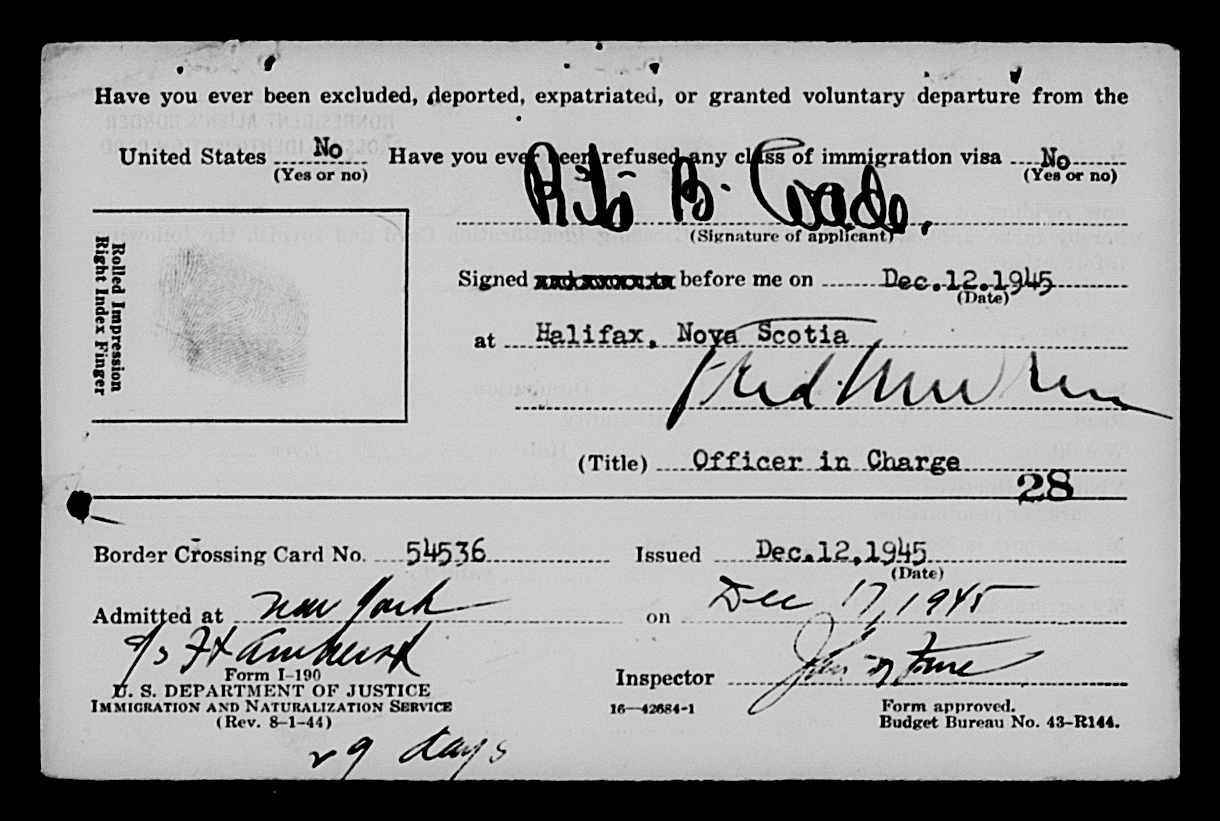 Have you ever been excluded, deported, expatriated, or granted voluntary departure from the
United States No Have you ever been refused any class of immigration visa No
(Yes or no) (Yes or no)
Rita B. Wade.
(Signature of applicant)
Rolled Impression
Right Index Finger
Signed xxxxxxxxxx before me on Dec.12.1945
(Date)
at Halifax, Nova Scotia
(Title) Officer in Charge
28
Border Crossing Card No. 54536 Issued Dec.12,1945
(Date)
Admitted at New York on Dec 17, 1945
Ft Amherst
Inspector
Form I-190
U. S. DEPARTMENT OF JUSTICE
IMMIGRATION AND NATURALIZATION SERVICE
(Rev. 8-1-44)
16—42684-1
Form approved.
Budget Bureau No. 43-R144.
29 days